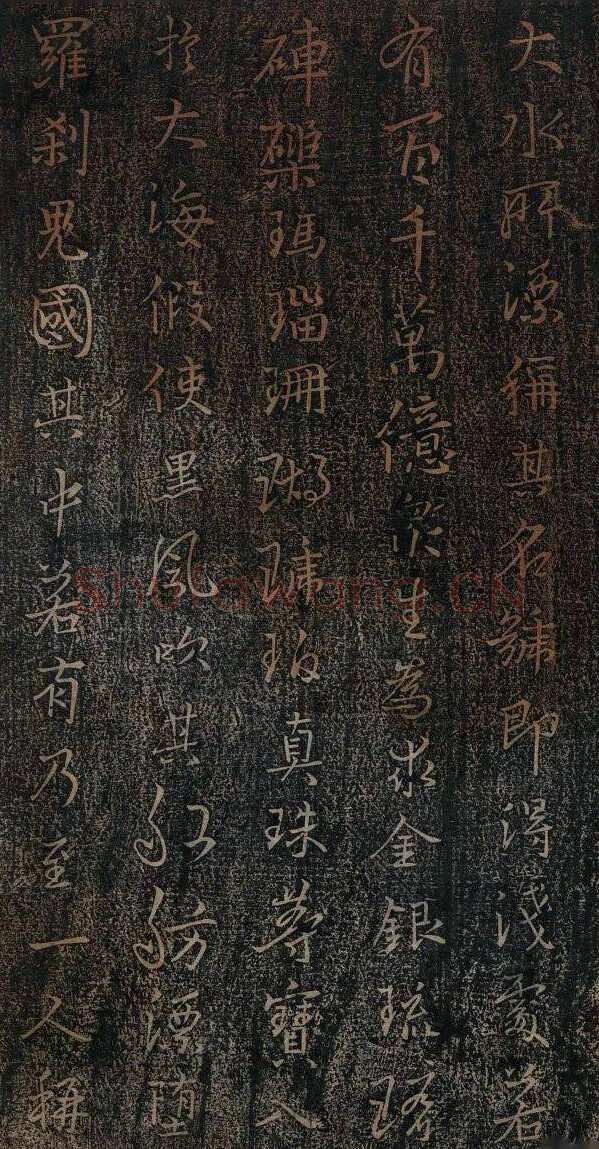 大水所漂稱其名號即得淺處若
有百千萬億眾生為求金銀琉璃
硨磲瑪瑙珊瑚琥珀真珠等寶入
於大海假使黑風吹其舡舫漂墮
羅剎鬼國其中若有乃至一人稱
Shufawang.CN